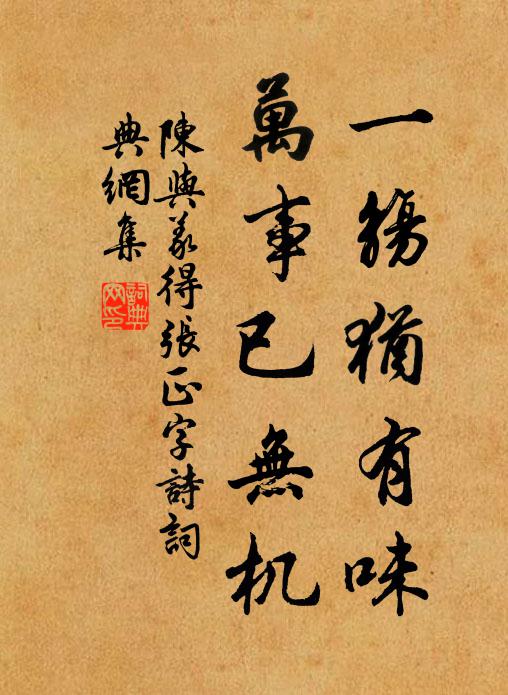 一觴猶有味
萬事已無机
陳與義得張正字詩詞
典網集
詞典網印